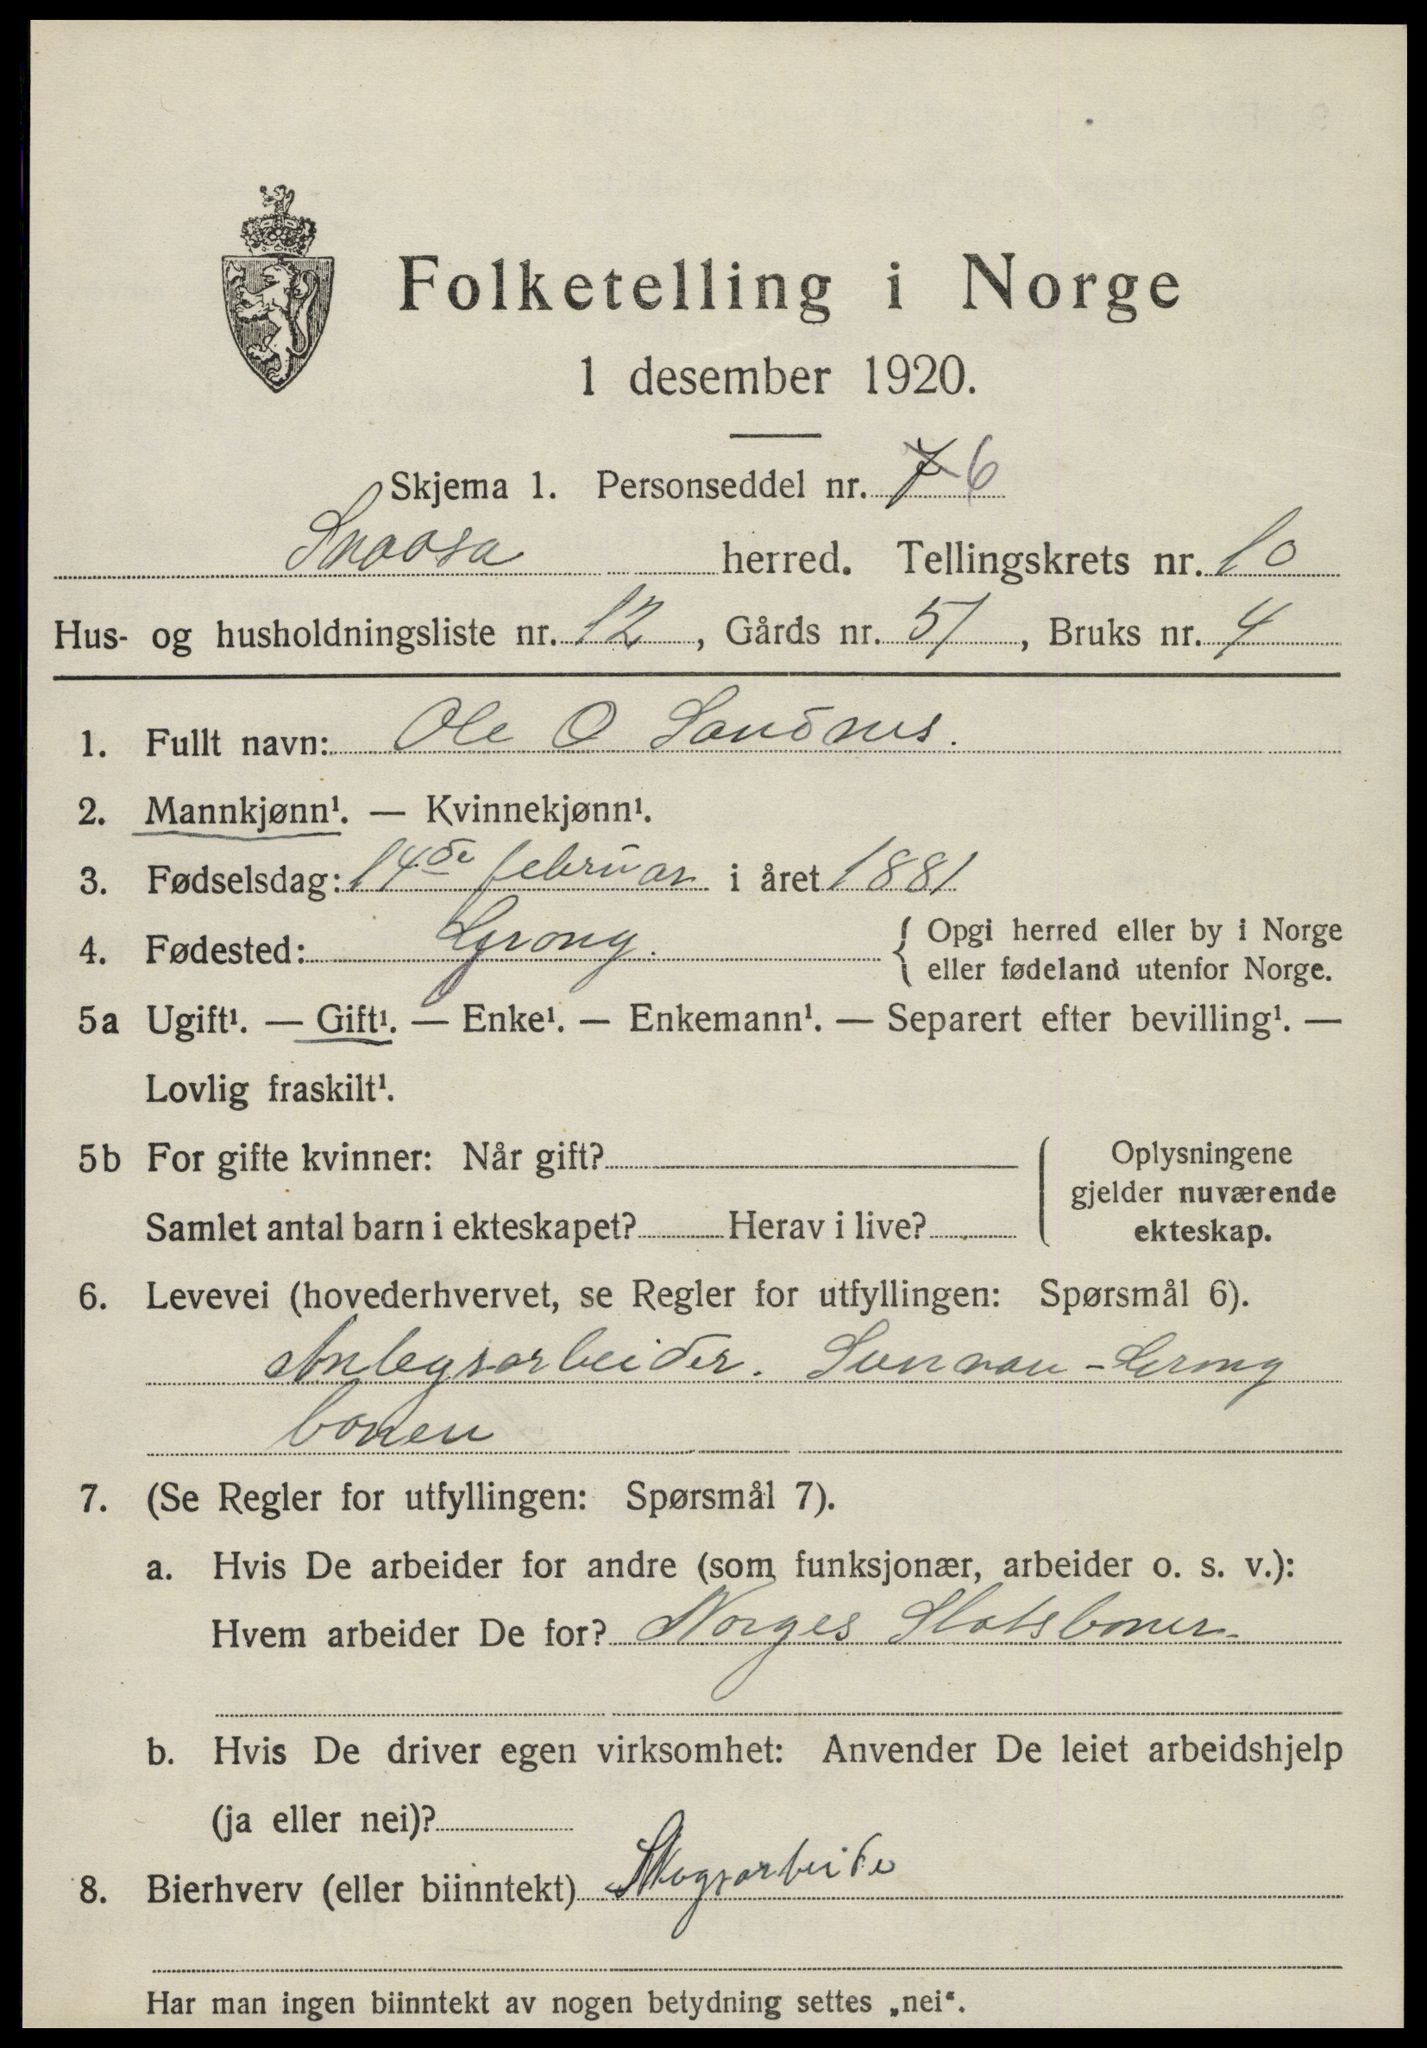 Folketelling i Norge
1 desember 1920.
Skjema 1. Personseddel nr. 7 6
Snaasa herred. Tellingskrets nr. 10
Hus- og husholdningsliste nr. 12, Gårds nr. 51, Bruks nr. 4
1. Fullt navn: Ole O Sandnes.
2. Mannkjønn¹. — Kvinnekjønn¹.
3. Fødselsdag: 14de februar i året 1881
4. Fødested: Grong. { Opgi herred eller by i Norge
eller fødeland utenfor Norge.
5a Ugift¹. — Gift¹. — Enke¹. — Enkemann¹. — Separert efter bevilling¹. —
Lovlig fraskilt¹.
5b For gifte kvinner: Når gift?
Samlet antal barn i ekteskapet? Herav i live?
Oplysningene
gjelder nuværende
ekteskap.
6. Levevei (hovederhvervet, se Regler for utfyllingen: Spørsmål 6).
Anlegsarbeider. Sunnan-Grong
banen
7. (Se Regler for utfyllingen: Spørsmål 7).
a. Hvis De arbeider for andre (som funksjonær, arbeider o. s. v.):
Hvem arbeider De for? Norges Statsbaner.
b. Hvis De driver egen virksomhet: Anvender De leiet arbeidshjelp
(ja eller nei)?
8. Bierhverv (eller biinntekt) Skogsarbeide
Har man ingen biinntekt av nogen betydning settes „nei“.